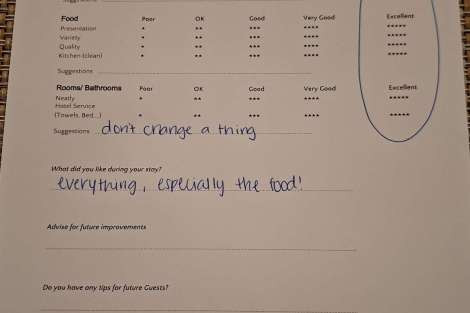 Food Poor OK Good Very Good Excellent
Presentation * ** *** **** *****
Variety * ** *** **** *****
Quality * ** *** **** *****
Kitchen (clean) * ** *** **** *****
Suggestions
Rooms/ Bathrooms Poor OK Good Very Good Excellent
Neatly * ** *** **** *****
Hotel Service
(Towels, Bed...) * ** *** **** *****
Suggestions don't change a thing
What did you like during your stay?
everything, especially the food!
Advise for future improvements
Do you have any tips for future Guests?